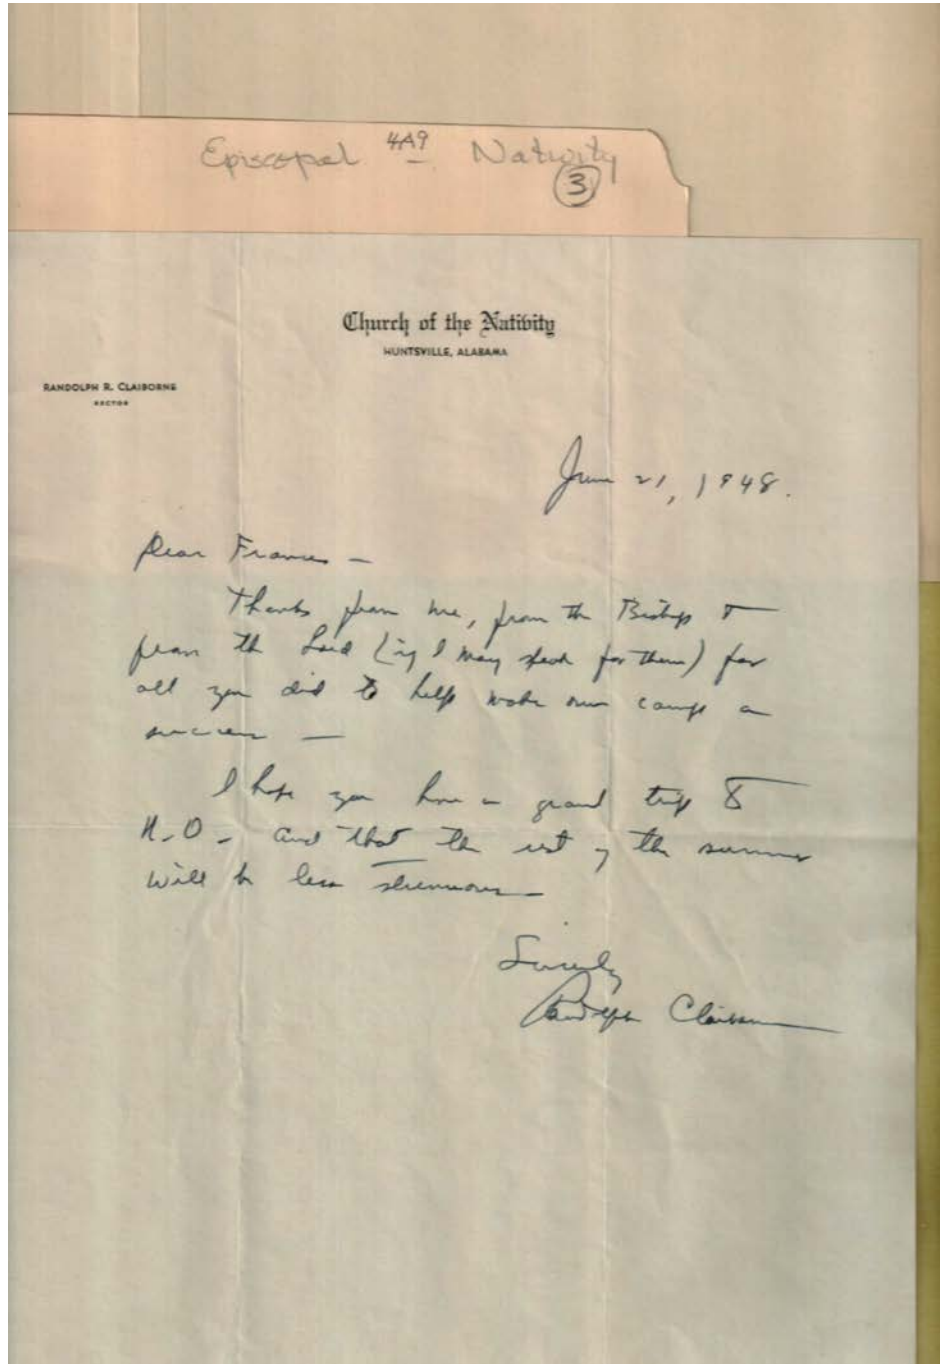 Episcopal 4A9 Nativity
3
Church of the Nativity
HUNTSVILLE, ALABAMA
RANDOLPH R. CLAIBORNE
RECTOR
June 21, 1948.
Dear Frances —
Thanks from me, from the Bishop &
from the Lord (if I may speak for them) for
all you did to help make our camp a
success —
I hope you have a grand trip to
N.O. - and that the rest of the summer
will be less strenuous —
Sincerely
Randolph Claiborne